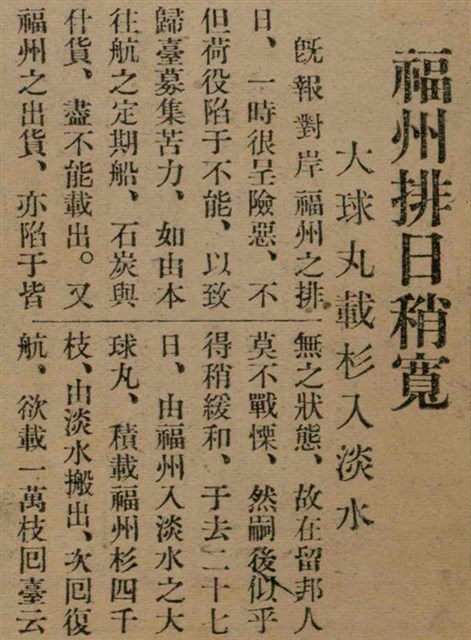 福州排日稍寬
大球丸載杉入淡水
旣報對岸福州之排
日、一時很呈險惡、不
但荷役陷于不能、以致
歸臺募集苦力、如由本
往航之定期船、石炭與
什貨、盡不能載出。又
福州之出貨、亦陷于皆
無之狀態、故在留邦人
莫不戰慄、然嗣後似乎
得稍緩和、于去二十七
日、由福州入淡水之大
球丸、積載福州杉四千
枝、由淡水搬出、次回復
航、欲載一萬枝回臺云